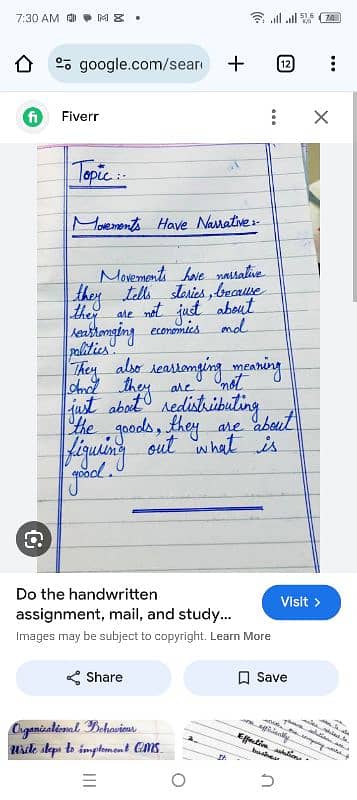 7:30 AM
74
google.com/sear
12
Fiverr
Topic :-
Movements Have Narrative:-
Movements have narrative
they tells stories, because
they are not just about
rearranging economics and
politics.
They also rearranging meaning
And they are not
just about redistributing
the goods, they are about
figuring out what is
good.
Do the handwritten
assignment, mail, and study...
Visit >
Images may be subject to copyright. Learn More
Share
Save
Organizational Behaviour
Write steps to implement QMS.